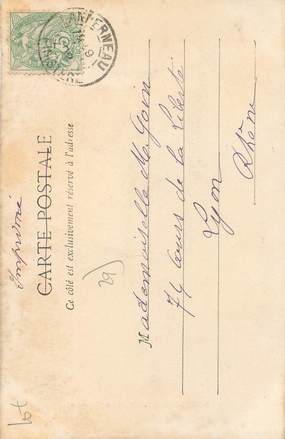 LANDERNEAU
FINISTERE
Imprimé
CARTE POSTALE
Ce côté est exclusivement réservé à l'adresse
Mademoiselle M. Goin
74 Cours de la Liberté
Lyon
Rhône
29)